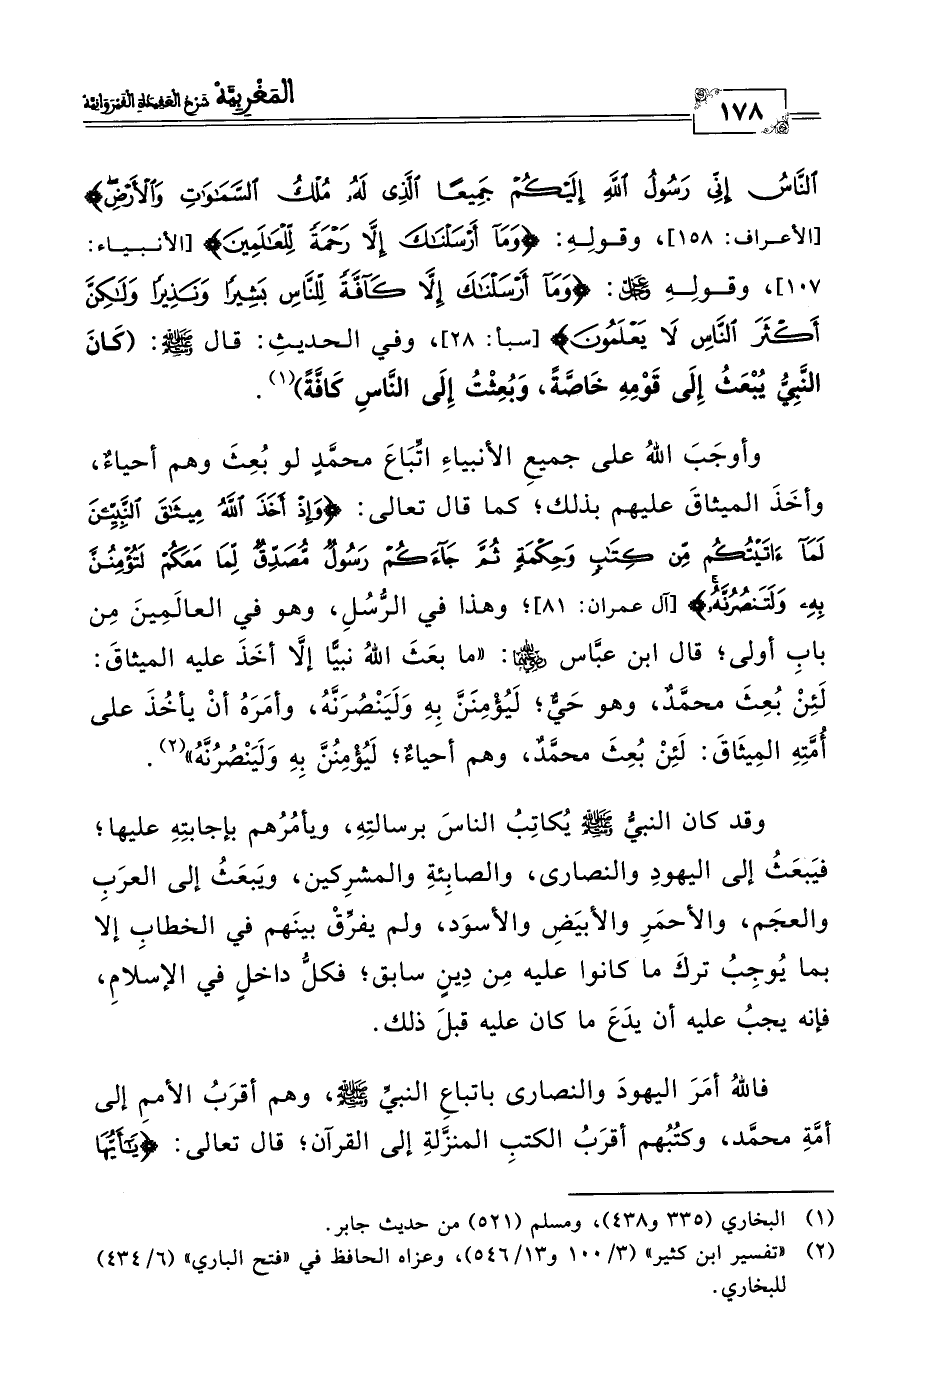 المَغْرِبِيَّة شَرْحُ العَقِيدَةِ القَيْرَوَانِيَّة
١٧٨
ٱلنَّاسُ إِنِّى رَسُولُ ٱللَّهِ إِلَيْكُمْ جَمِيعًا ٱلَّذِى لَهُۥ مُلْكُ ٱلسَّمَٰوَٰتِ وَٱلْأَرْضِ﴾
[الأعراف: ١٥٨]، وقولِهِ: ﴿وَمَآ أَرْسَلْنَٰكَ إِلَّا رَحْمَةً لِّلْعَٰلَمِينَ﴾ [الأنبياء:
١٠٧]، وقولِهِ ﷻ: ﴿وَمَآ أَرْسَلْنَٰكَ إِلَّا كَآفَّةً لِّلنَّاسِ بَشِيرًا وَنَذِيرًا وَلَٰكِنَّ
أَكْثَرَ ٱلنَّاسِ لَا يَعْلَمُونَ﴾ [سبأ: ٢٨]، وفي الحديثِ: قال ﷺ: (كَانَ
النَّبِيُّ يُبْعَثُ إِلَى قَوْمِهِ خَاصَّةً، وَبُعِثْتُ إِلَى النَّاسِ كَافَّةً)(١).
وأوجَبَ اللهُ على جميعِ الأنبياءِ اتِّبَاعَ محمَّدٍ لو بُعِثَ وهم أحياءٌ،
وأخَذَ الميثاقَ عليهم بذلك؛ كما قال تعالى: ﴿وَإِذْ أَخَذَ ٱللَّهُ مِيثَٰقَ ٱلنَّبِيِّـۧنَ
لَمَآ ءَاتَيْتُكُم مِّن كِتَٰبٍ وَحِكْمَةٍ ثُمَّ جَآءَكُمْ رَسُولٌ مُّصَدِّقٌ لِّمَا مَعَكُمْ لَتُؤْمِنُنَّ
بِهِۦ وَلَتَنصُرُنَّهُۥ﴾ [آل عمران: ٨١]؛ وهذا في الرُّسُلِ، وهو في العالَمِينَ مِن
بابِ أولى؛ قال ابن عبَّاس ﵄: «ما بعَثَ اللهُ نبيًّا إلَّا أخَذَ عليه الميثاقَ:
لَئِنْ بُعِثَ محمَّدٌ، وهو حَيٌّ؛ لَيُؤْمِنَنَّ بِهِ وَلَيَنْصُرَنَّهُ، وأمَرَهُ أنْ يأخُذَ على
أُمَّتِهِ المِيثَاقَ: لَئِنْ بُعِثَ محمَّدٌ، وهم أحياءٌ؛ لَيُؤْمِنُنَّ بِهِ وَلَيَنْصُرُنَّهُ»(٢).
وقد كان النبيُّ ﷺ يُكاتِبُ الناسَ برسالتِهِ، ويأمُرُهم بإجابتِهِ عليها؛
فيَبعَثُ إلى اليهودِ والنصارى، والصابِئةِ والمشرِكين، ويَبعَثُ إلى العرَبِ
والعجَم، والأحمَرِ والأبيَضِ والأسوَد، ولم يفرِّقْ بينَهم في الخطابِ إلا
بما يُوجِبُ تركَ ما كانوا عليه مِن دِينٍ سابق؛ فكلُّ داخلٍ في الإسلامِ،
فإنه يجبُ عليه أن يدَعَ ما كان عليه قبلَ ذلك.
فاللهُ أمَرَ اليهودَ والنصارى باتباعِ النبيِّ ﷺ، وهم أقرَبُ الأممِ إلى
أمَّةِ محمد، وكتُبُهم أقرَبُ الكتبِ المنزَّلةِ إلى القرآن؛ قال تعالى: ﴿يَٰٓأَيُّهَا
(١) البخاري (٣٣٥ و٤٣٨)، ومسلم (٥٢١) من حديث جابر.
(٢) «تفسير ابن كثير» (٣/ ١٠٠ و١٣/ ٥٤٦)، وعزاه الحافظ في «فتح الباري» (٦/ ٤٣٤)
للبخاري.